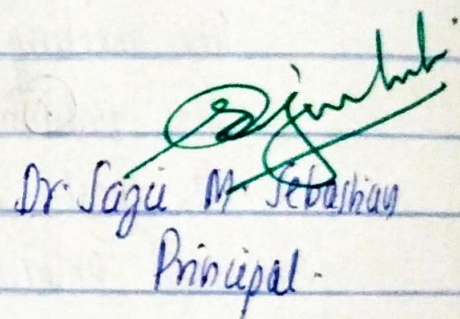 Dr. Sazu M. Sebastian
Principal.